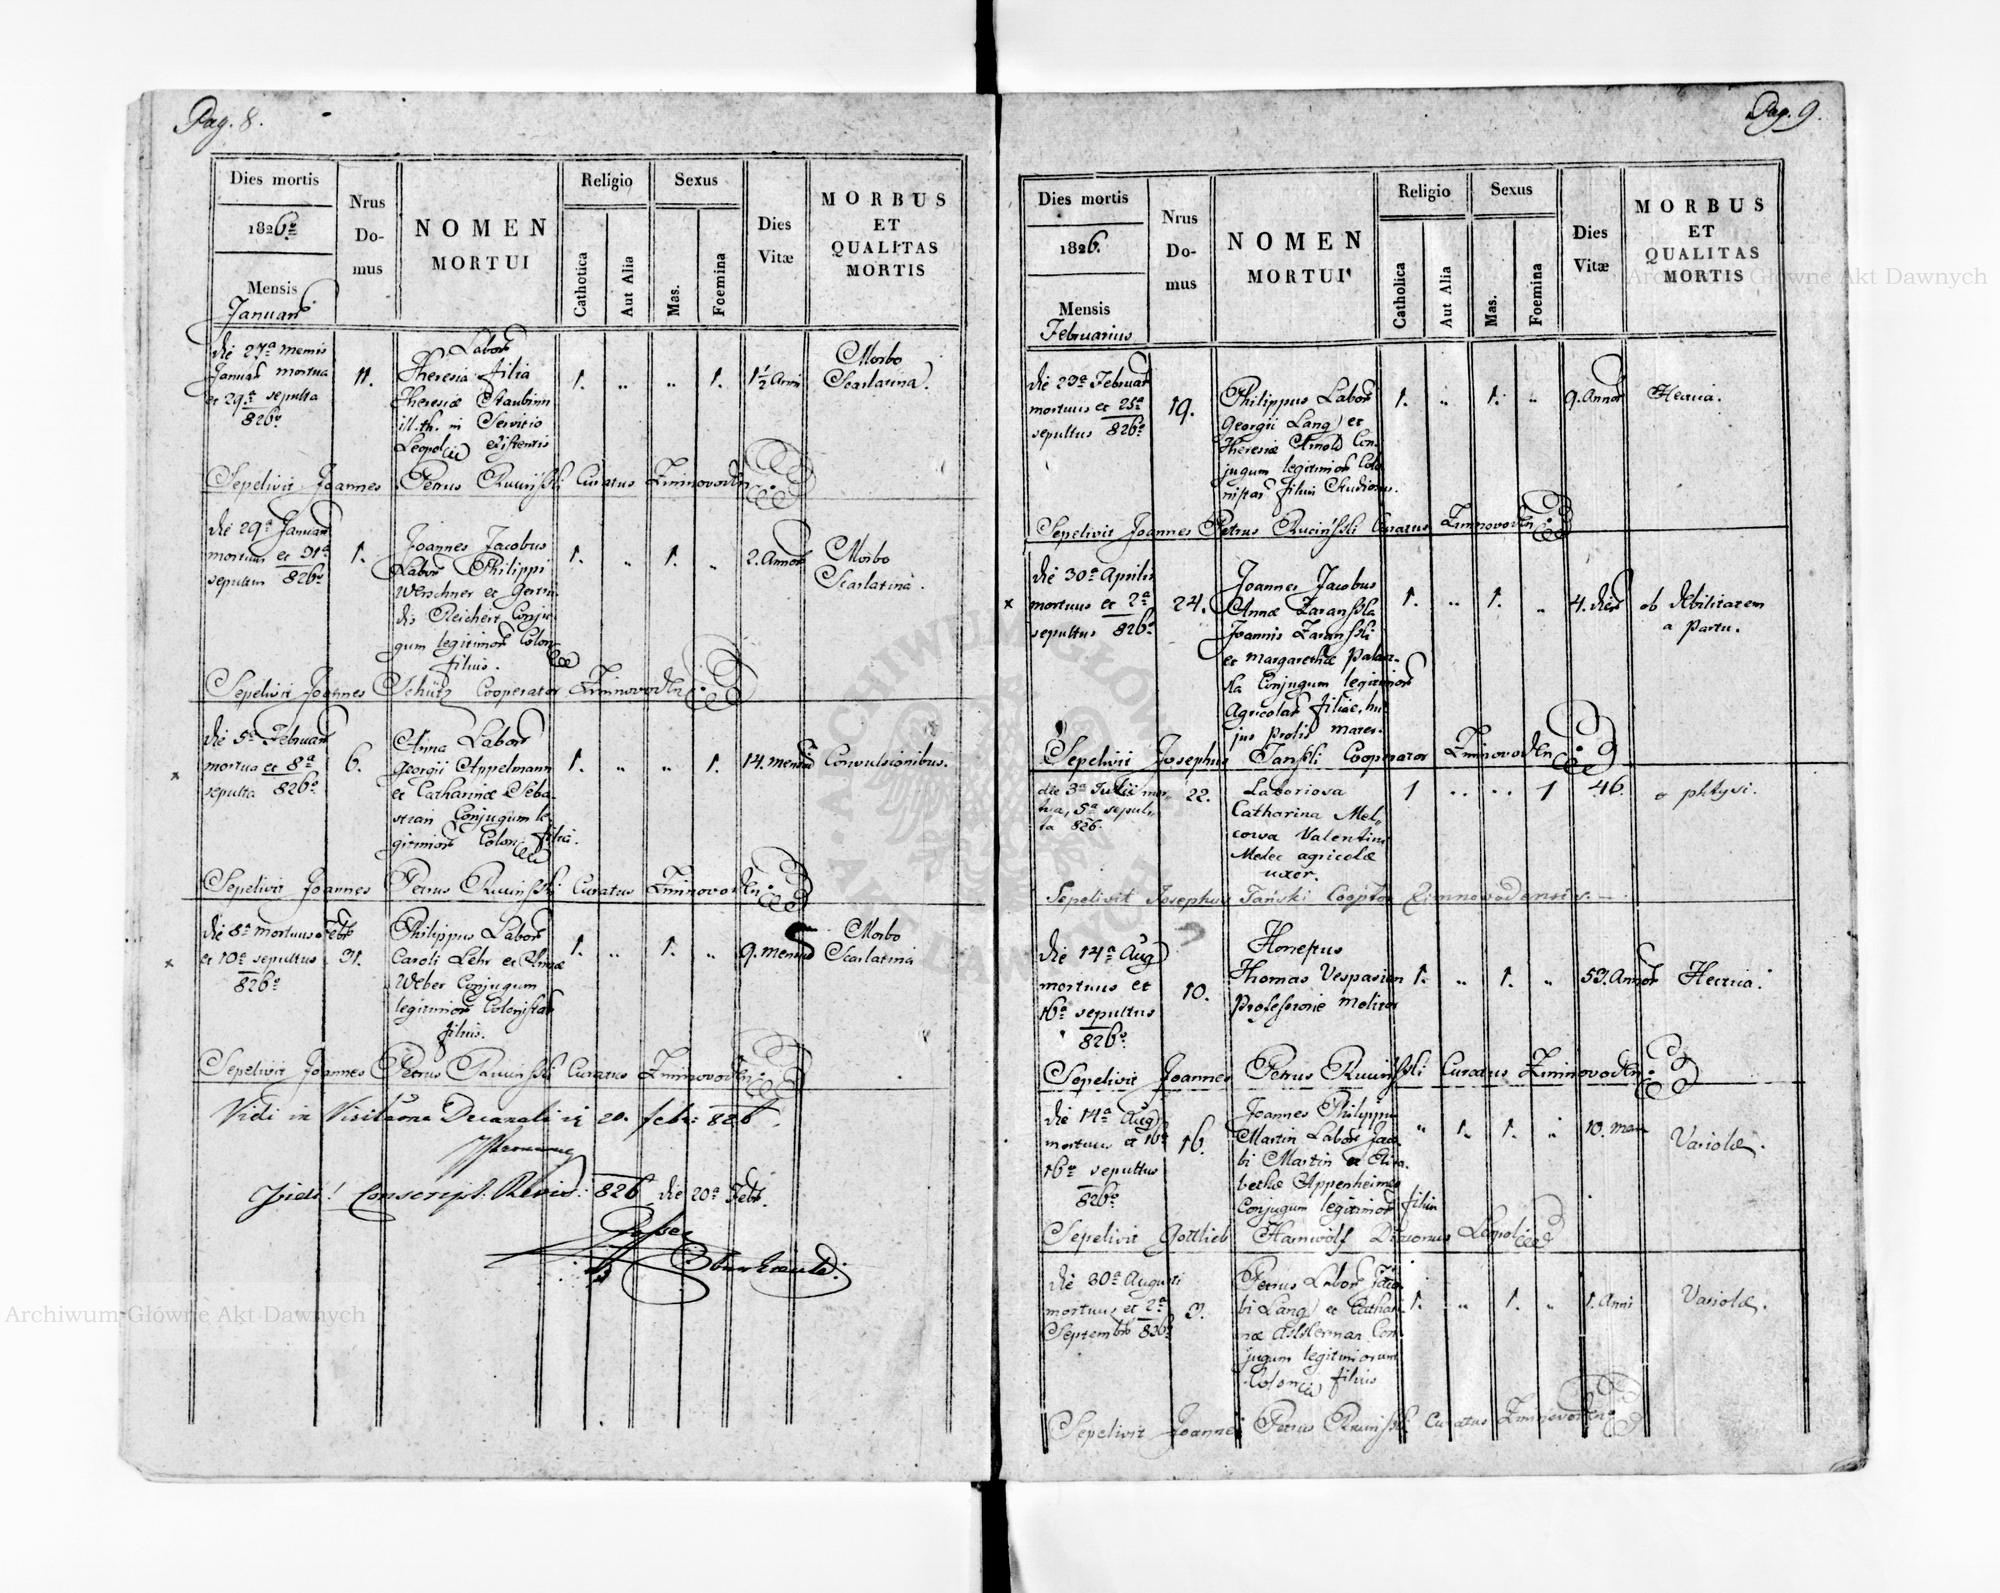 Pag. 8.
Dies mortis
1826
Mensis
Januar
Nrus
Do-
mus
NOMEN
MORTUI
Religio
Catholica
Aut Alia
Sexus
Mas.
Foemina
Dies
Vitæ
MORBUS
ET
QUALITAS
MORTIS
die 27a mensis
Januar mortua
et 29a sepulta
826
11.
Labor
Theresia filia
Theresiæ
in Servitio
Leopolis existentis
1.
"
"
1.
1½ Anni
Morbo
Scarlatina.
Sepelivit Joannes Petrus Curatus
die 29a Januar
mortuus et 31a
sepultus 826
1.
Joannes Jacobus
Labor Philippi
Werschner et Gertru-
dis Reichert Conju-
gum legitimor Colon
filius.
1.
"
1.
"
2. Annor
Morbo
Scarlatina.
Sepelivit Joannes Schütz Cooperator
die 5a Februar
mortua et 8a
sepulta 826
6.
Anna Labor
Georgii Appelmann
et Catharinæ Seba-
stian Conjugum le-
gitimor Colon filia.
1.
"
"
1.
14. mensiu
Convulsionibus.
Sepelivit Joannes Petrus Curatus
x
die 8a mortuus Febr
et 10a sepultus
826
31.
Philippus Labor
Caroli Lehr et Annæ
Weber Conjugum
legitimor Colonistar
filius.
1.
"
1.
"
9. mensiu
Morbo
Scarlatina
x
Sepelivit Joannes Petrus Curatus
Vidi in Visitaone Decanali 20. febr: 826
Vidi! Conscript. Revis: 826 die 20a Febr.
Pag. 9.
Dies mortis
1826.
Mensis
Februarius
Nrus
Do-
mus
NOMEN
MORTUI
Religio
Catholica
Aut Alia
Sexus
Mas.
Foemina
Dies
Vitæ
MORBUS
ET
QUALITAS
MORTIS
die 23a Februar
mortuus et 25a
sepultus 826
19.
Philippus Labor
Georgii Lang et
Theresiæ Arnold Con-
jugum legitimor Colo-
nistar filius Studiosus.
1.
"
1.
"
9. Annor
Hectica.
Sepelivit Joannes Petrus Ruciński Curatus
x
die 30a Aprilis
mortuus et 2a
sepultus 826
24.
Joannes Jacobus
Annæ Zarańska
Joannis Zarański
et Margarethæ
Conjugum legitimor
Agricolar filiæ, hu-
jus prolis mater.
1.
"
1.
"
4. dies
ob debilitatem
a partu.
Sepelivit Josephus Tański Cooperator
die 3a Julii mor-
tua, 5a sepul-
ta 826.
22.
Laboriosa
Catharina Mel-
cowa Valentini
Melec agricolæ
uxor.
1
..
..
1
46.
a phtysi.
Sepelivit Josephus Tański Cooptor Zimnowodensis.
die 14a Aug
mortuus et
16a sepultus
826
10.
Honestus
Thomas Vespasian
Professione molitor
1.
"
1.
"
53. Annor
Hectica.
Sepelivit Joannes Petrus Ruciński Curatus
die 14a Aug
mortuus et 16a
16a sepultus
826
16.
Joannes Philippus
Martin Labor Jaco-
bi Martin et Eliza-
bethæ Appenheimer
Conjugum legitimor filius
"
1.
1.
"
10. men
Variolæ.
Sepelivit Gottlieb Hamwolf Leopol
die 30a Augusti
mortuus et 2a
Septembr 826
3.
Petrus Labor Jaco-
bi Lang et Cathari-
næ Con-
jugum legitimorum
Colon filius
1.
"
1.
"
1. Anni
Variolæ.
Sepelivit Joannes Petrus Curatus
Archiwum Główne Akt Dawnych
Archiwum Główne Akt Dawnych